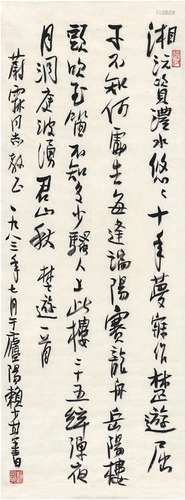 湘沅資澧水悠悠十年夢寐作楚遊屈
子不知何處去每逢端陽賽龍舟岳陽樓
頭吹玉笛不知多少騷人上此樓二十五絃彈夜
月洞庭波湧君山秋 楚遊一首
蔚霖同志教正 一九八三年七月于廬陽賴少其書